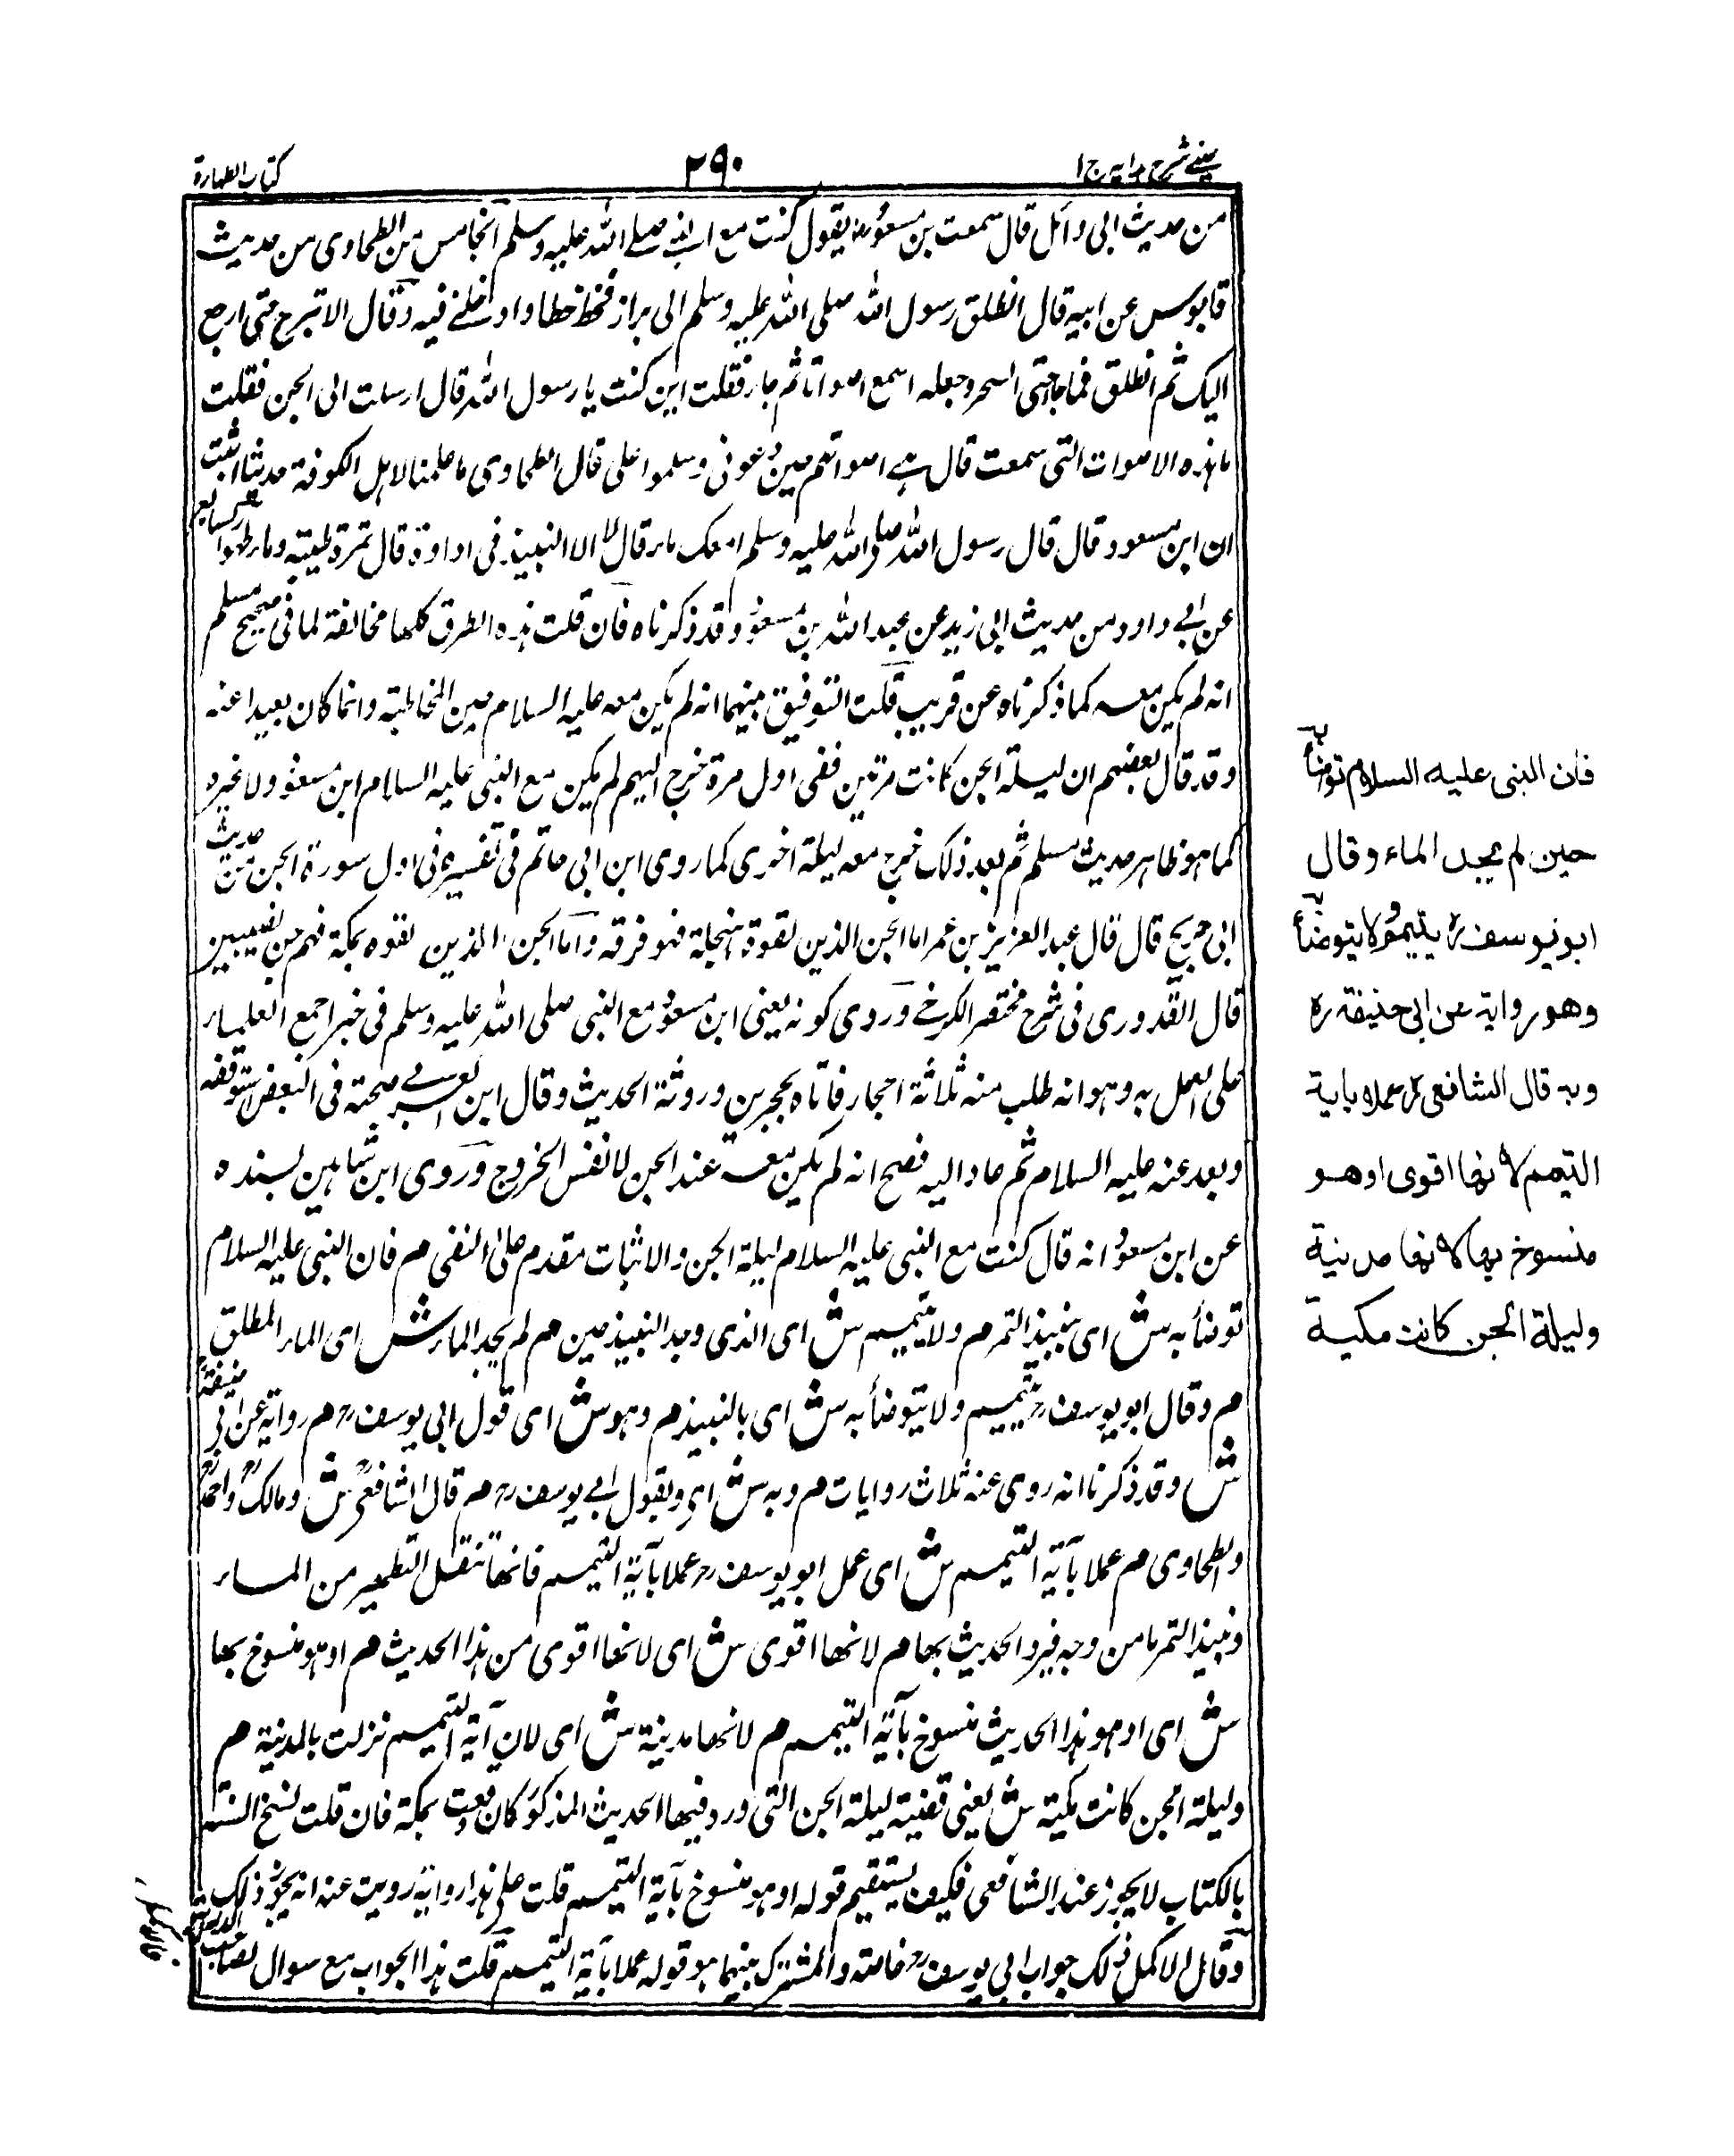 عينى شرح هدايه ج ا
٢٩٠
كتاب الطهارة
من حديث ابى وائل قال سمعت بن مسعود رض يقول كنت مع النبى صلے اللّٰه عليه وسلم الخامس من الطحاوى من حديث
قابوس عن ابيه قال انطلق رسول اللّٰه صلى اللّٰه عليه وسلم الى براز فخط خطا وادخلنے فيه وقال لا تبرح حتى ارجع
اليك ثم انطلق فما جاء حتى السحر وجعلت اسمع اصواتا ثم جاء فقلت اين كنت يا رسول اللّٰه قال ارسلت الى الجن فقلت
ما هذه الاصوات التى سمعت قال هے اصواتهم حين دعونى وسلموا على قال الطحاوى ما علمنا لاهل الكوفة حديثا اثبت
ان ابن مسعود قال قال رسول اللّٰه صلى اللّٰه عليه وسلم امعك ماء قال لا الا النبيذ فى اداوة قال تمرة طيبة وماء طهور السابع
عن ابے داود من حديث ابى زيد عن عبد اللّٰه بن مسعود وقد ذكرناه فان قلت هذه الطرق كلها مخالفة لما فى صحيح مسلم
انه لم يكن معه كما ذكرناه عن قريب قلت التوفيق بينهما انه لم يكن معه عليه السلام حين المخاطبة وانما كان بعيدا عنه
وقد قال بعضهم ان ليلة الجن كانت مرتين ففى اول مرة خرج اليهم لم يكن مع النبى عليه السلام ابن مسعود ولا غيره
كما هو ظاهر حديث مسلم ثم بعد ذلك خرج معه ليلة اخرى كما روى ابن ابى حاتم فى تفسيره فى اول سورة الجن من حديث
ابى جريج قال قال عبد العزيز بن عمر اما الجن الذين لقوه بنخلة فهو فرقه واما الجن الذين لقوه بمكة فهم من نصيبين
قال القدورى فى شرح مختصر الكرخے وروى كونه يعنى ابن مسعود مع النبى صلى اللّٰه عليه وسلم فى خبر اجمع العلماء
على العمل به وهو انه طلب منه ثلاثة احجار فاتاه بحجرين وروثة الحديث وقال ابن العربے صحبته فى البعض استوقفه
وبعد عنه عليه السلام ثم عاد اليه فصح انه لم يكن معه عند الجن لا نفس الخروج وروى ابن شاهين بسنده
عن ابن مسعود انه قال كنت مع النبى عليه السلام ليلة الجن والاثبات مقدم على النفى م فان النبى عليه السلام
توضأ به ش اى بنبيذ التمر م ولا يتيمم ش اى الذى وجد النبيذ حين م لم يجد الماء ش اى الماء المطلق
م وقال ابو يوسف رح يتيمم ولا يتوضأ به ش اى بالنبيذ م وهو ش اى قول ابى يوسف رح م رواية عن ابى حنيفة رح
ش وقد ذكرنا انه روى عنه ثلاث روايات م وبه ش اى وبقول ابے يوسف رح م قال الشافعى رح ش ومالك رح واحمد رح
والطحاوى م عملا بآية التيمم ش اى عمل ابو يوسف رح عملا بآية التيمم فانها تنقل التطهير من الماء
ونبيذ التمر ما من وجه فيرد الحديث بها م لانها اقوى ش اى لانها اقوى من هذا الحديث م او هو منسوخ بها
ش اى او هو هذا الحديث منسوخ بآية التيمم م لانها مدينة ش اى لان آية التيمم نزلت بالمدينة م
وليلة الجن كانت مكية ش يعنى قضية ليلة الجن التى ورد فيها الحديث المذكور كان وقعت بمكة فان قلت نسخ السنة
بالكتاب لا يجوز عند الشافعى فكيف يستقيم قوله او هو منسوخ بآية التيمم قلت على هذا رواية رويت عنه انه يجوز ذلك
وقال الاكمل ذلك جواب ابى يوسف رح خاصته والمشترك بينهما هو قوله عملا بآية التيمم قلت هذا الجواب مع سوال لصاحب
فان النبى عليه السلام توضأ به
حين لم يجد الماء وقال
ابو يوسف ره يتيمم ولا يتوضأ به
وهو رواية عن ابى حنيفة ره
وبه قال الشافعى ره عملا باية
التيمم لانها اقوى او هو
منسوخ بها لانها مدنية
وليلة الجن كانت مكية